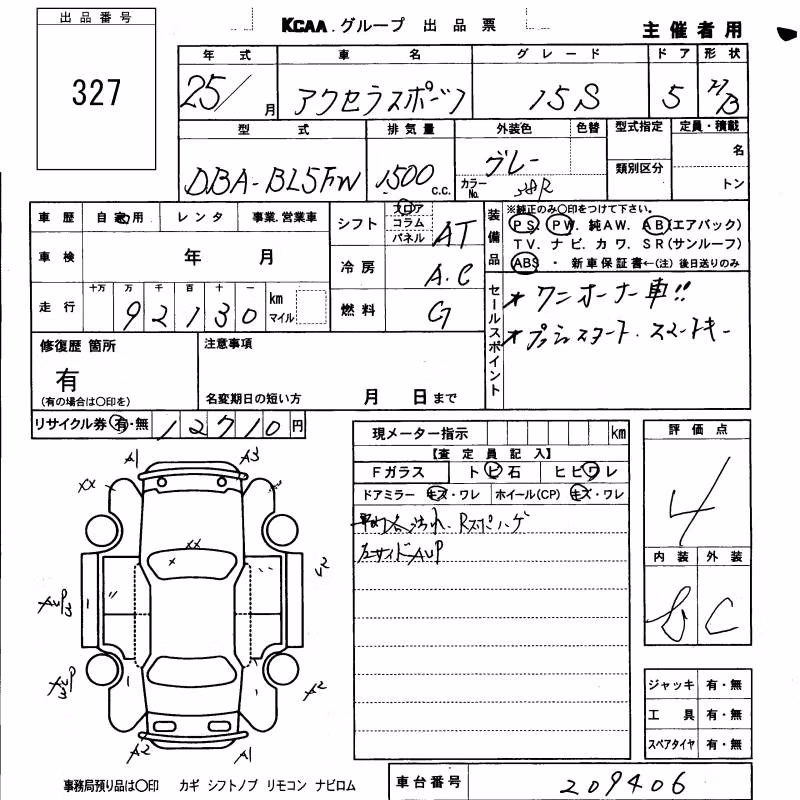 出品番号
327
KCAA.グループ 出品票
主催者用
年式 車名 グレード ドア 形状
25/ 月 アクセラスポーツ 15S 5 H/B
型式 排気量 外装色 色替 型式指定 定員・積載
DBA-BL5FW 1500 c.c. グレー
カラーNo. 38R 類別区分 名
トン
車歴 自家用 レンタ 事業.営業車
シフト フロア コラム パネル AT
装備品 ※純正のみ〇印をつけて下さい。
PS. PW. 純AW. AB(エアバック)
TV. ナビ. カワ. SR(サンルーフ)
ABS ・ 新車保証書←(注) 後日送りのみ
車検 年 月
冷房 A.C
走行 十万 万 千 百 十 一
92130 km マイル
燃料 G
セールスポイント
* ワンオーナー車!!
* プッシュスタート. スマートキー
修復歴 箇所
有
(有の場合は〇印を)
注意事項
名変期日の短い方 月 日まで
リサイクル券 有・無 12710 円
現メーター指示 km
【査定員記入】
Fガラス トビ石 ヒビワレ
ドアミラー キズ・ワレ ホイール(CP) キズ・ワレ
Rスポハゲ
左サイドAUP
評価点
4
内装 外装
C
A1 A3
XX
XX
X
A2
A2 A1
ジャッキ 有・無
工具 有・無
スペアタイヤ 有・無
事務局預り品は〇印 カギ シフトノブ リモコン ナビロム
車台番号 209406